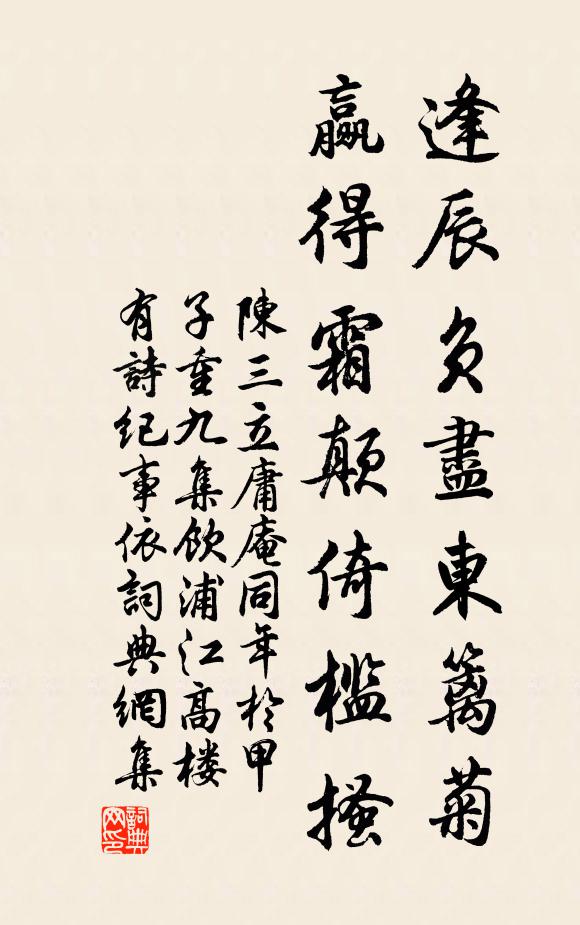 逢辰負盡東籬菊
贏得霜顛倚檻搔
陳三立庸庵同年於甲
子重九集飲浦江高楼
有詩紀事依詞典網集
詞典
网印